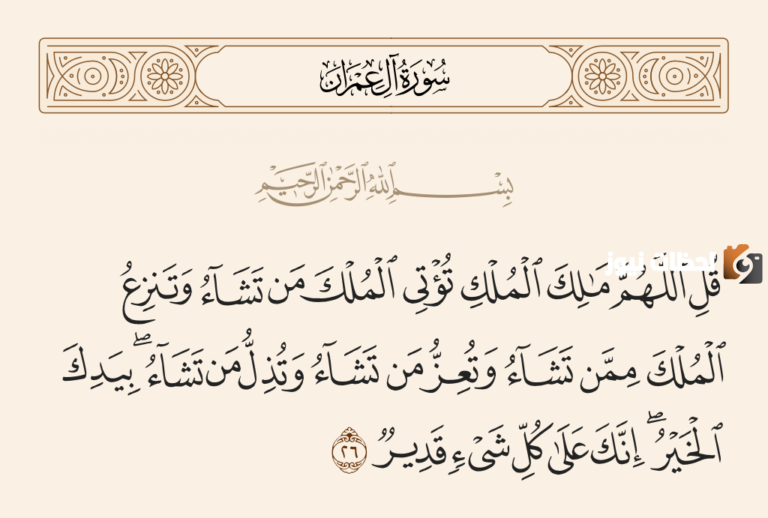 سُورَةُ آلِ عِمْرَانَ
بِسْمِ ٱللَّهِ ٱلرَّحْمَٰنِ ٱلرَّحِيمِ
لحظات نيوز
قُلِ ٱللَّهُمَّ مَٰلِكَ ٱلْمُلْكِ تُؤْتِى ٱلْمُلْكَ مَن تَشَآءُ وَتَنزِعُ
ٱلْمُلْكَ مِمَّن تَشَآءُ وَتُعِزُّ مَن تَشَآءُ وَتُذِلُّ مَن تَشَآءُ ۖ بِيَدِكَ
ٱلْخَيْرُ ۖ إِنَّكَ عَلَىٰ كُلِّ شَىْءٍ قَدِيرٌ ٢٦